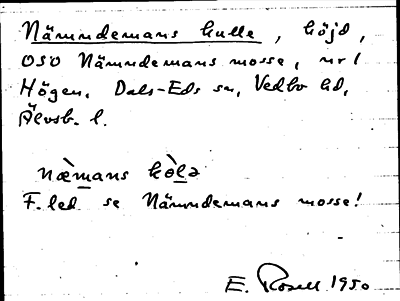 Nämndemans kulle, höjd,
OSO Nämndemans mosse, nr 1
Högen, Dals-Eds sn, Vedbo hd,
Älvsb. l.
næ̀mans kòlə
F. led se Nämndemans mosse!
E. Rosell 1950